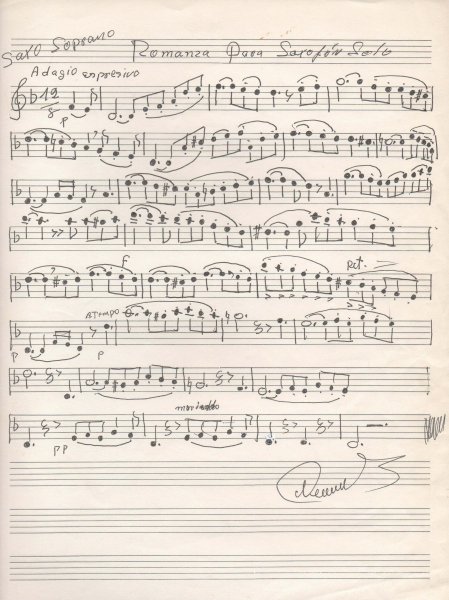 Saxo Soprano
Romanza Para Saxofón Solo
Adagio expresivo
12
8
P
F
Rit.
P
ATEMPO
P
moriendo
PP